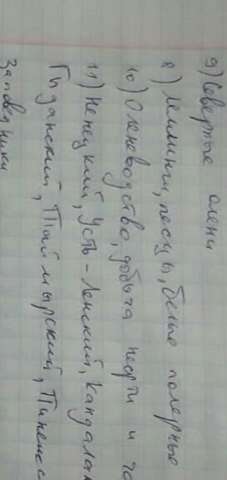 9) Северные олени
8) Лемминги, песцы, белые полярные
10) Оленеводство, добыча нефти и га
11) Ненецкий, Усть-Ленский, Кандалак
Гыданский, Таймырский, Пинежс
заповедники